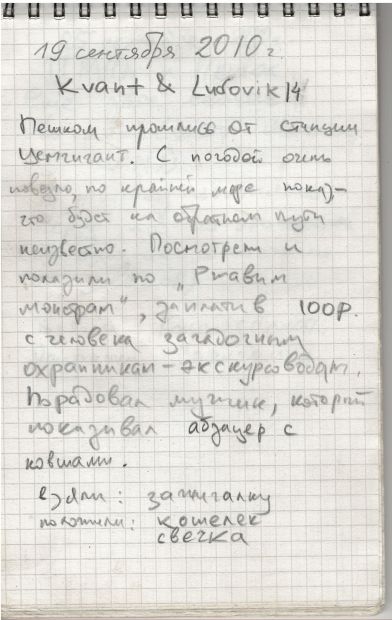 19 сентября 2010 г.
Kvant & Ludovik 14
Пешком прошлись от станции
Цемгигант. С погодой очень
повезло, по крайней мере пока)-
что будет на обратном пути
неизвестно. Посмотрели и
полазили по „Ржавим
монстрам“, заплатив 100р.
с человека загадочным
охранникам-экскурсоводам.
Порадовал мужик, который
показывал абзацер с
ковшами.
Взяли: зажигалку
положили: кошелек
свечка